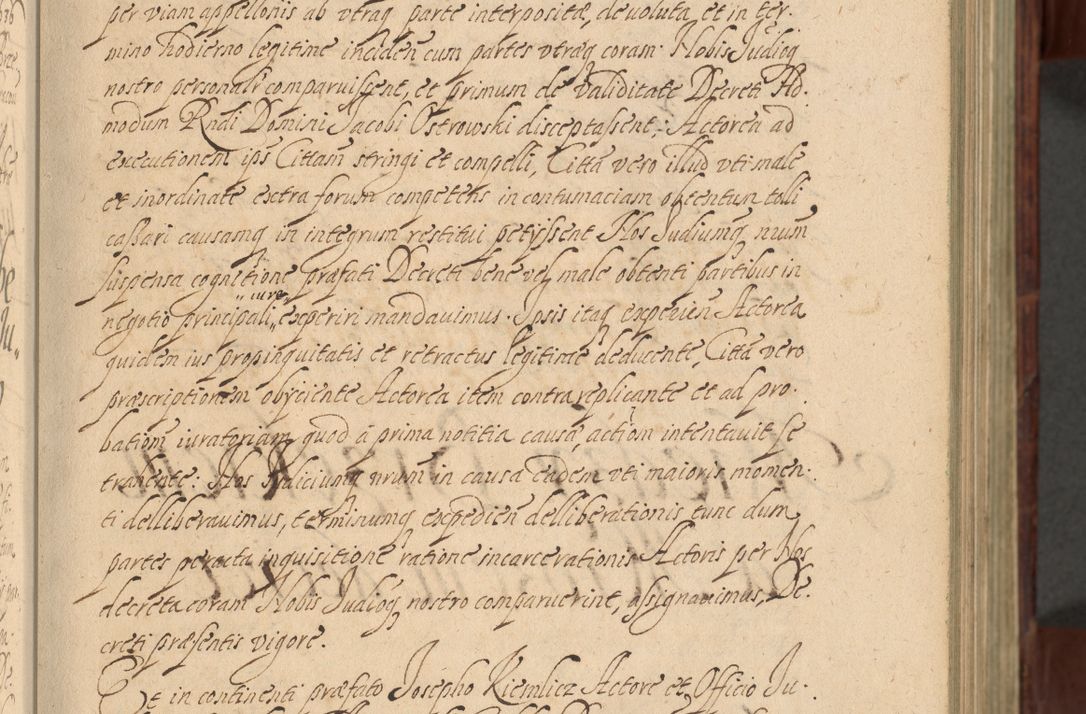 per viam appellōnis ab vtraq parte interpositæ, devoluta, et in ter-
mino hodierno legitime inciden cum partes vtræq coram Nobis Judioq
nostro personalr comparuissent, et primum de validitate Decreti Ad-
modum Rndi Domini Jacobi Ostrowski disceptassent, Actorea ad
executionem ips Cittam stringi et compelli, Citta vero illud vti male
et inordinate extra forum competens in contumaciam obtentum tolli
cassari causamq in integrum restitui petyssent Nos Judiumq nrum
suspensa cognitione præfati Decreti bene vel male obtenti partibus in
negotio principali iure experiri mandavimus. Ipsis itaq experien Actorea
quidem ius propinquitatis et retractus legitime deducente, Citta vero
præscriptionem obyciente Actorea item contra replicante et ad pro-
bationē iuratoriam quod à prima notitia causā actiōn intentavit se
trahente: Nos Judiciumq nrum in causa eadem vti maioris momen-
ti delliberavimus, terminumq expedien delliberationis tunc dum
partes peracta inquisitione ratione incarcerationis Actoris per Nos
decreta coram Nobis Judioq nostro comparuerint, assignavimus, De-
creti præsentis vigore.
Et in continenti præfato Josepho Kiemlicz Actore et Officio Ju-